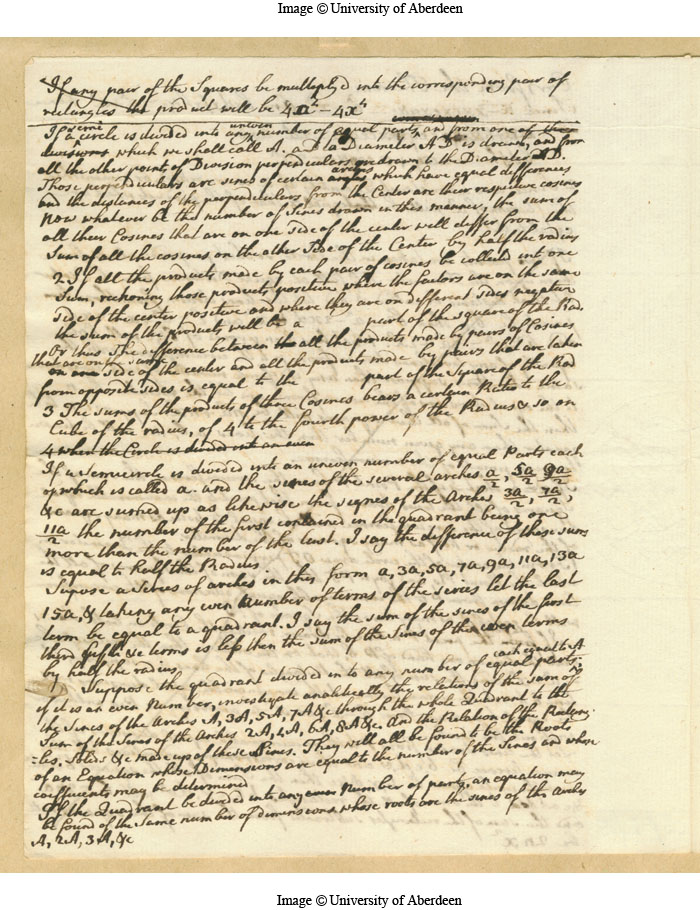 Image © University of Aberdeen
If any pair of the Squares be multiplyd into the corresponding pair of
rectangles the product will be
semi uneven
If a circle is divided into any number of equal parts, and from one of these
divisions which we shall call A. a Diameter A D is drawn, and from
all the other points of Division perpendiculars are drawn to the Diameter A D.
arches
Those perpendiculars are sines of certain angles which have equal differences
and the distances of the perpendiculars from the Center are their respective cosines
Now whatever be the number of Sines drawn in this manner, the sum of
all their Cosines that are on one side of the center will differ from the
Sum of all the cosines on the other Side of the Center by half the radius
2. If all the products made by each pair of cosines be collected into one
Sum, reckoning those products positive where the factors are on the same
side of the center positive and where they are on different sides negative
the sum of the products will be a part of the square of the Rad.
Or thus The difference between all the products made by pairs of Cosines
that are on the same side of the center and all the products made by pairs that are taken
from opposite sides is equal to the part of the Square of the Rad
3 The sums of the products of three Cosines bears a certain Ratio to the
Cube of the radius, of 4 to the fourth power of the Radius & so on
4 when the Circle is divided into an even
If a Semicircle is divided into an uneven number of equal Parts each
of which is called a. and the sines of the several arches a/2, 5a/2 9a/2
&c are sumed up as likewise the signes of the Arches 3a/2, 7a/2,
11a/2 the number of the first contained in the quadrant being one
more than the number of the last. I say the difference of those sums
is equal to half the Radius
Supose a Series of arches in this form a, 3a, 5a, 7a, 9a, 11a, 13a
15a, & taking any even number of terms of the series let the last
term be equal to a quadrant. I say the sum of the sines of the first
third fifth &c terms is less then the sum of the Sines of the even terms
by half the radius
each equal to A
Suppose the quadrant divided into any number of equal parts,
if it is an even Number, investigate analitically the relations of the sum of
the Sines of the Arches A, 3A, 5A, 7A &c through the whole Quadrant to the
Sum of the Sines of the Arches 2A, 4A, 6A, 8A &c. And the Relation of the Rectang-
-les, Solids &c made up of these Sines. They will all be found to be the Roots
of an Equation whose Dimensions are equal to the number of the Sines and whose
coefficients may be determined
If the Quadrant be divided into any even Number of parts, an equation may
be found of the same number of dimensions whose roots are the sines of the arches
A, 2A, 3A, &c
Image © University of Aberdeen